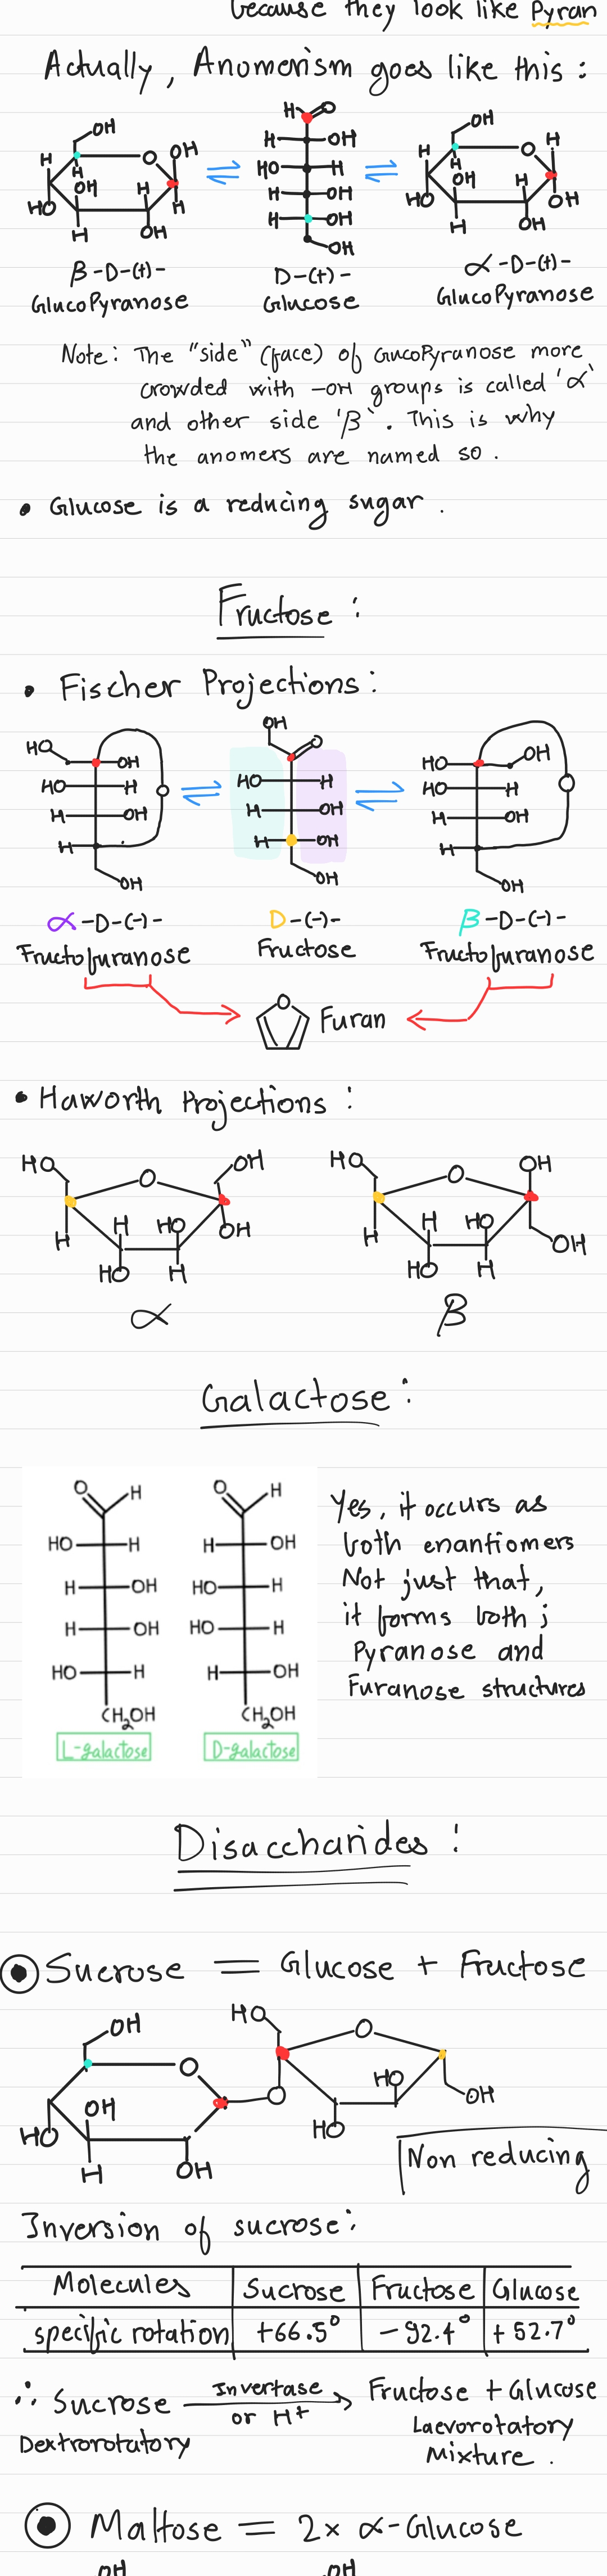 because they look like Pyran
Actually, Anomerism goes like this :
OH
H O OH
H
H
OH H
HO H
H OH
β-D-(+)-
GlucoPyranose
H O
H OH
HO H
H OH
H OH
OH
D-(+)-
Glucose
OH
H O H
H
OH H
HO OH
H OH
α-D-(+)-
GlucoPyranose
Note: The "side" (face) of GlucoPyranose more
crowded with -OH groups is called 'α'
and other side 'β'. This is why
the anomers are named so.
• Glucose is a reducing sugar.
Fructose :
• Fischer Projections :
HO OH
HO H
H OH O
H
OH
α-D-(-)-
Fructofuranose
OH
O
HO H
H OH
H OH
OH
D-(-)-
Fructose
HO OH
HO H O
H OH
H
OH
β-D-(-)-
Fructofuranose
O
Furan
• Haworth Projections :
HO O OH
H H HO OH
HO H
α
HO O OH
H H HO OH
HO H
β
Galactose :
O H
HO H
H OH
H OH
HO H
CH2OH
L-galactose
O H
H OH
HO H
HO H
H OH
CH2OH
D-galactose
Yes, it occurs as
both enantiomers
Not just that,
it forms both ;
Pyranose and
Furanose structures
Disaccharides :
Sucrose = Glucose + Fructose
OH HO O
O
OH O HO OH
HO HO
H OH
Non reducing
Inversion of sucrose :
Molecules Sucrose Fructose Glucose
specific rotation +66.5° -92.4° +52.7°
∴ Sucrose Invertase or H+ → Fructose + Glucose
Dextrorotatory Laevorotatory
Mixture.
Maltose = 2x α-Glucose
OH OH